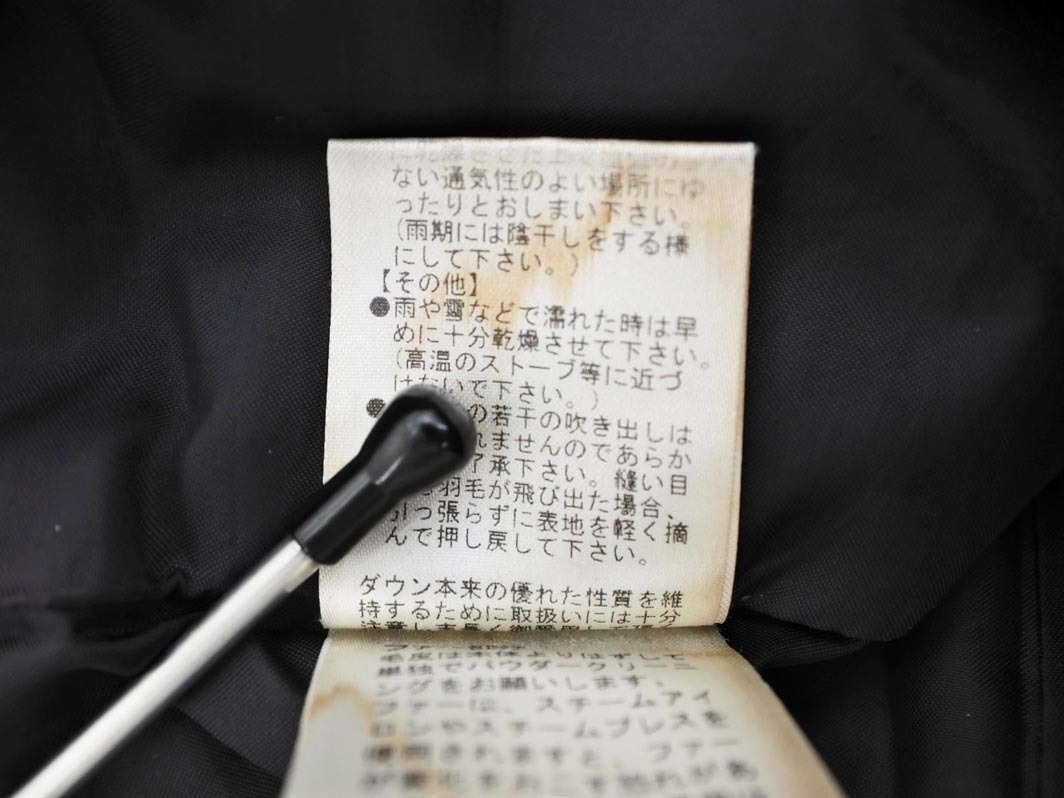 ない通気性のよい場所にゆ
ったりとおしまい下さい。
(雨期には陰干しをする様
にして下さい。)
【その他】
●雨や雪などで濡れた時は早
めに十分乾燥させて下さい。
(高温のストーブ等に近づ
けないで下さい。)
● の若干の吹き出しは
れませんのであらか
了承下さい。縫い目
羽毛が飛び出た場合、
引っ張らずに表地を軽く摘
んで押し戻して下さい。
ダウン本来の優れた性質を維
持するために取扱いには十分
毛皮は本体よりはずして
単独でパウダークリーニ
ングをお願いします。
ファーは、スチームアイ
ロンやスチームプレスを
使用されますと、ファー